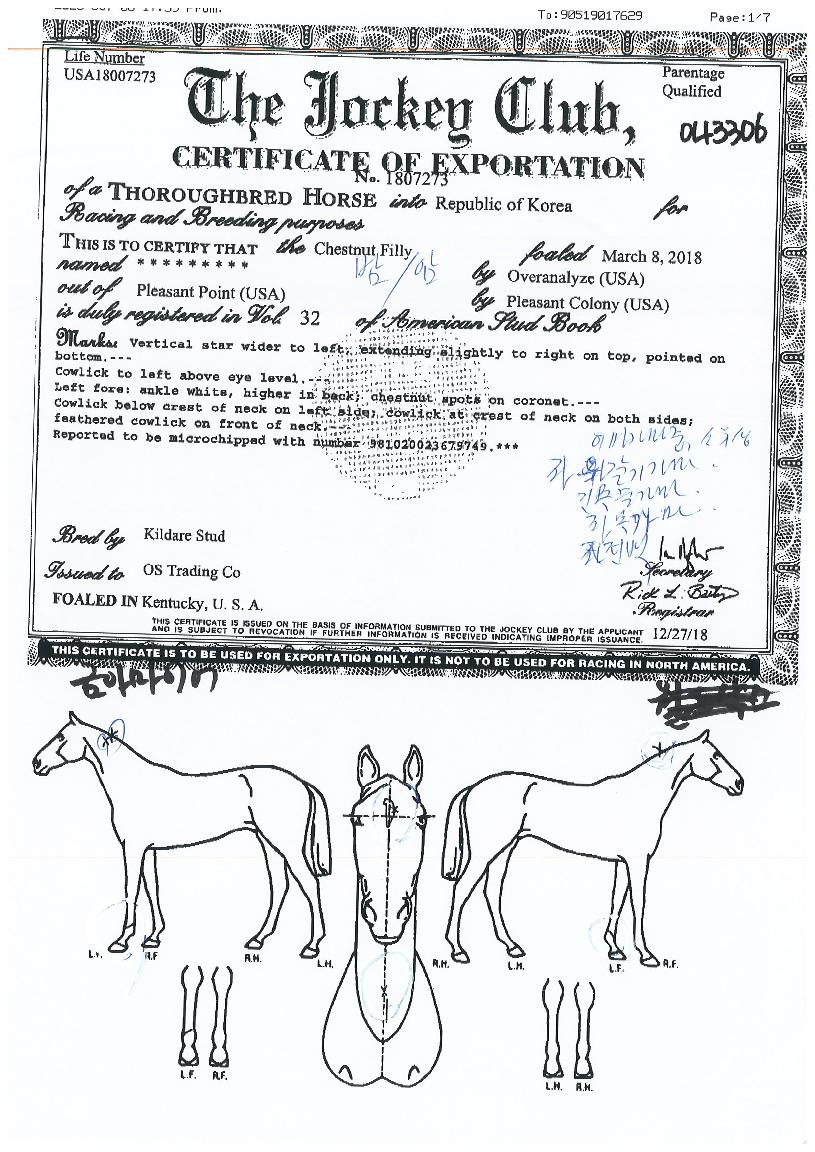 To:90519017629 Page:1/7
Life Number
USA18007273
Parentage
Qualified
The Jockey Club,
043306
CERTIFICATE OF EXPORTATION
No. 1807273
of a THOROUGHBRED HORSE into Republic of Korea for
Racing and Breeding purposes
THIS IS TO CERTIFY THAT the Chestnut Filly foaled March 8, 2018
named * * * * * * * * * by Overanalyze (USA)
out of Pleasant Point (USA) by Pleasant Colony (USA)
is duly registered in Vol. 32 of American Stud Book
Marks: Vertical star wider to left, extending slightly to right on top, pointed on
bottom.---
Cowlick to left above eye level.---
Left fore: ankle white, higher in back; chestnut spots on coronet.---
Cowlick below crest of neck on left side; cowlick at crest of neck on both sides;
feathered cowlick on front of neck.---
Reported to be microchipped with number 981020023679749.***
Bred by Kildare Stud
Issued to OS Trading Co
Secretary
FOALED IN Kentucky, U. S. A.
Registrar
THIS CERTIFICATE IS ISSUED ON THE BASIS OF INFORMATION SUBMITTED TO THE JOCKEY CLUB BY THE APPLICANT
AND IS SUBJECT TO REVOCATION IF FURTHER INFORMATION IS RECEIVED INDICATING IMPROPER ISSUANCE. 12/27/18
THIS CERTIFICATE IS TO BE USED FOR EXPORTATION ONLY. IT IS NOT TO BE USED FOR RACING IN NORTH AMERICA.
R.F. R.H. L.H. R.H. L.H. L.F. R.F.
L.F. R.F. L.H. R.H.